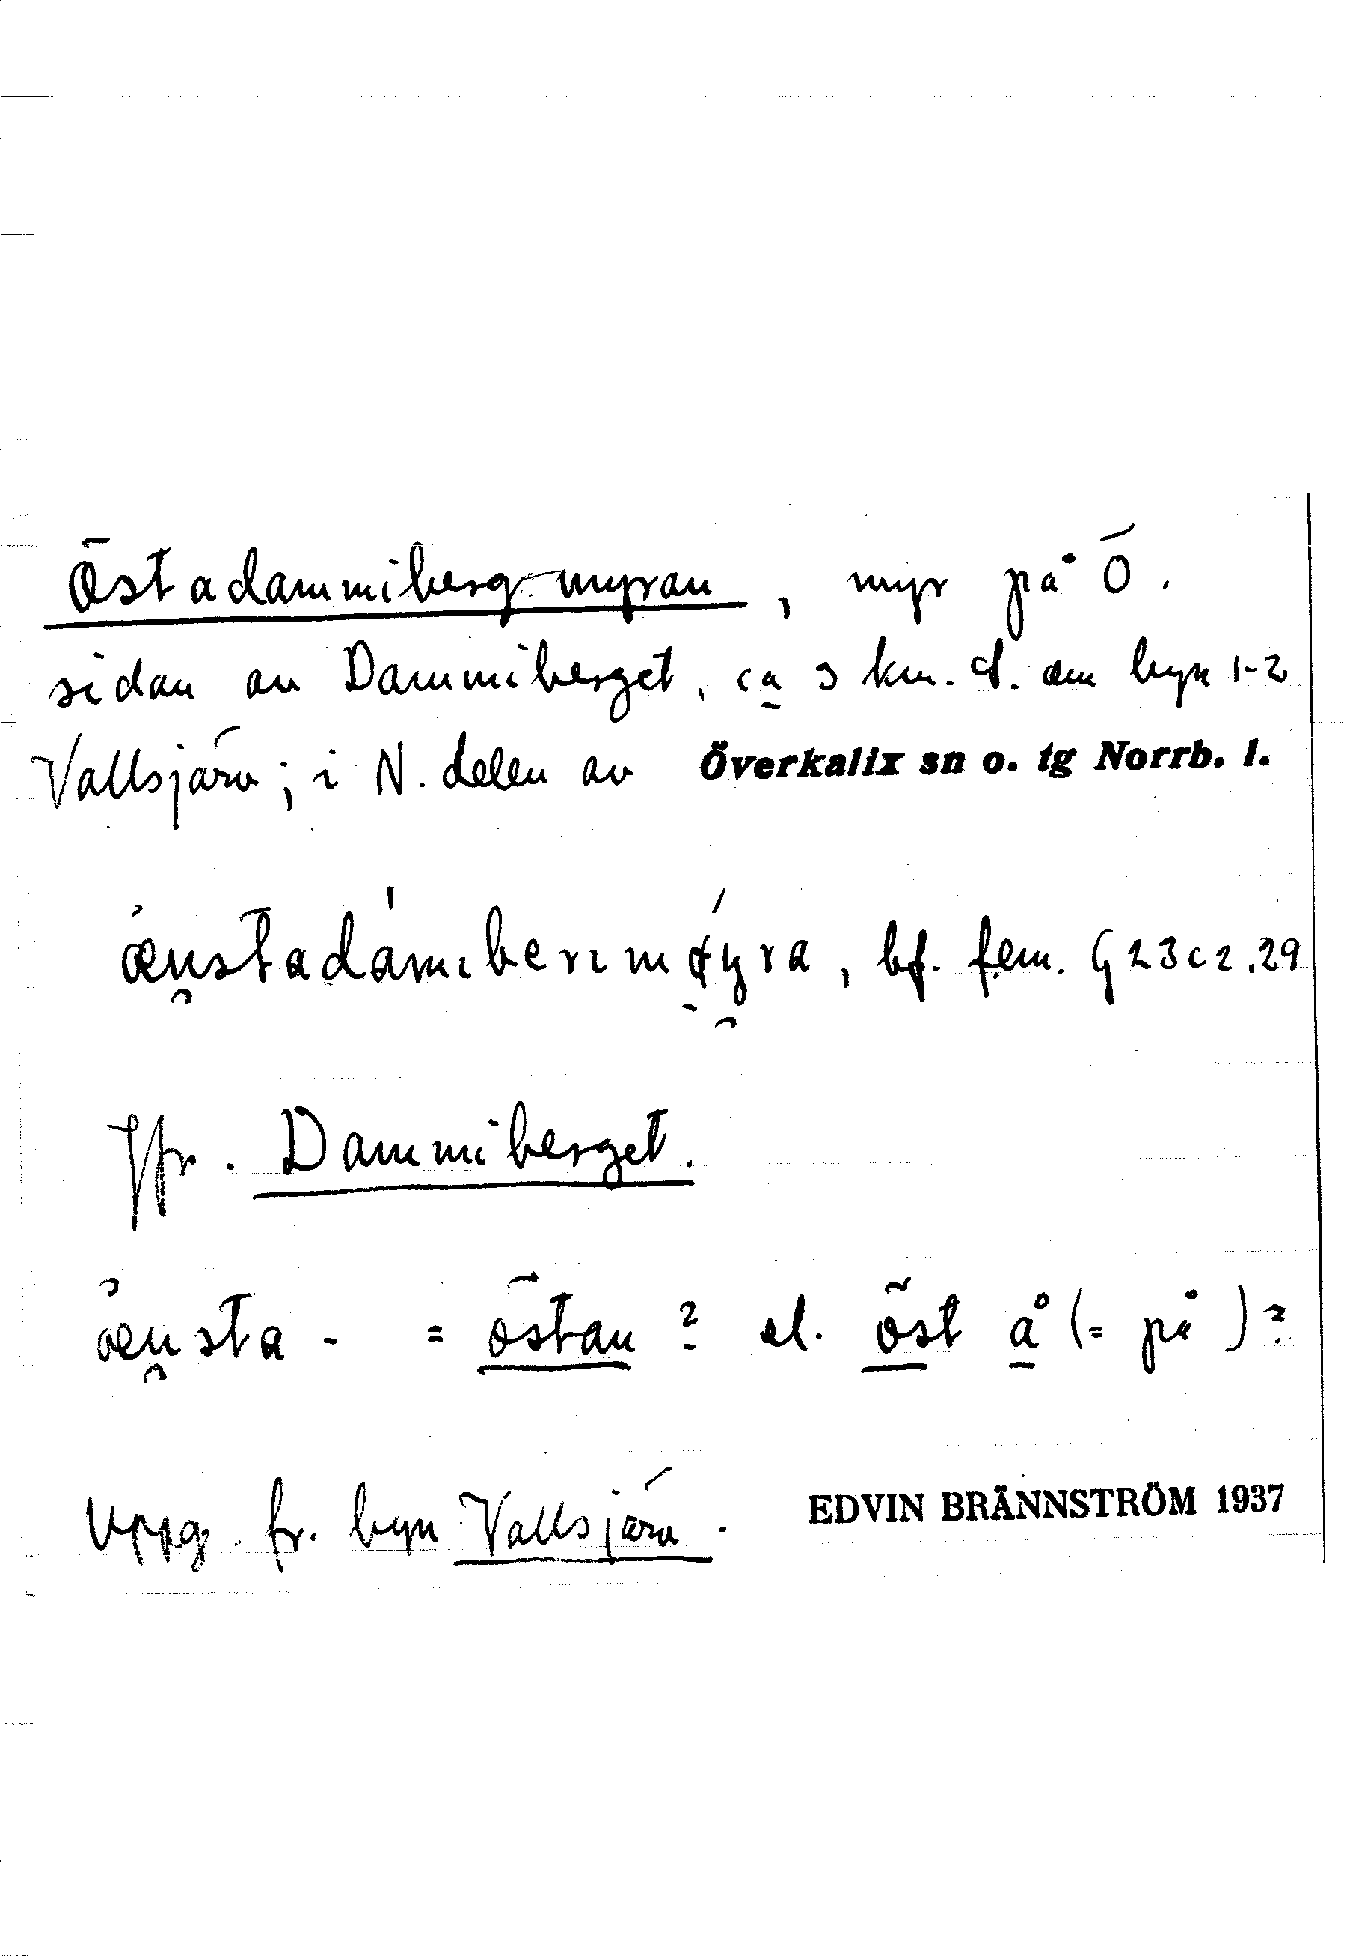 Östadammibergmyran, myr på Ö.
sidan av Dammiberget, ca 3 km. om byn 1-2
Vallsjärv; i N. delen av Överkalix sn o. tg Norrb. l.
bf. fem. § 23 c 2. 29
Jfr. Dammiberget.
= östan? el. öst å (= på)?
Uppg. fr. byn Vallsjärv.
EDVIN BRÄNNSTRÖM 1937